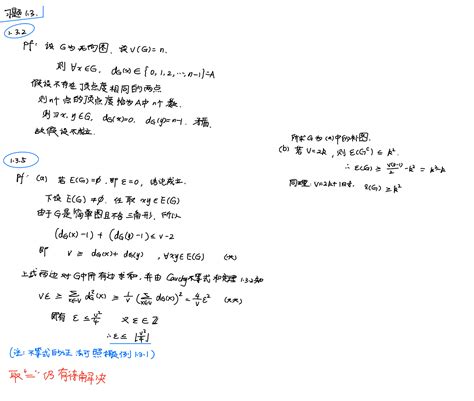 习题1.3.
1.3.2
Pf: 设 G 为无向图, 设 v(G)=n.
则 ∀x∈G, d_G(x)∈{0,1,2,⋯,n-1}=A
假设不存在顶点度相同的两点
则n个点的顶点度恰为A中n个数.
则∃x,y∈G, d_G(x)=0, d_G(y)=n-1, 矛盾.
故假设不成立.
1.3.5
Pf: (a) 若 E(G)=∅, 即 ε=0, 结论成立.
下设 E(G)≠∅, 任取 xy∈E(G)
由于G是简单图且不含三角形, 所以
(d_G(x)-1)+(d_G(y)-1)≤v-2
即 v ≥ d_G(x)+d_G(y), ∀xy∈E(G) (*)
上式两边对G中所有边求和, 并由Cauchy不等式和定理1.3.2知
vε ≥ Σ_{x∈V} d_G²(x) ≥ 1/v (Σ_{x∈V} d_G(x))² = 4/v ε² (**)
即有 ε ≤ v²/4 又 ε∈ℤ
∴ ε ≤ ⌊v²/4⌋
(注: 不等式的证法可照搬例1.3.1)
取"="的 有待解决
所求G为(a)中的补图.
(b) 若 v=2k, 则 ε(G^c) ≤ k².
∴ ε(G) ≥ v(v-1)/2 - k² = k²-k
同理 v=2k+1时, ε(G) ≥ k²